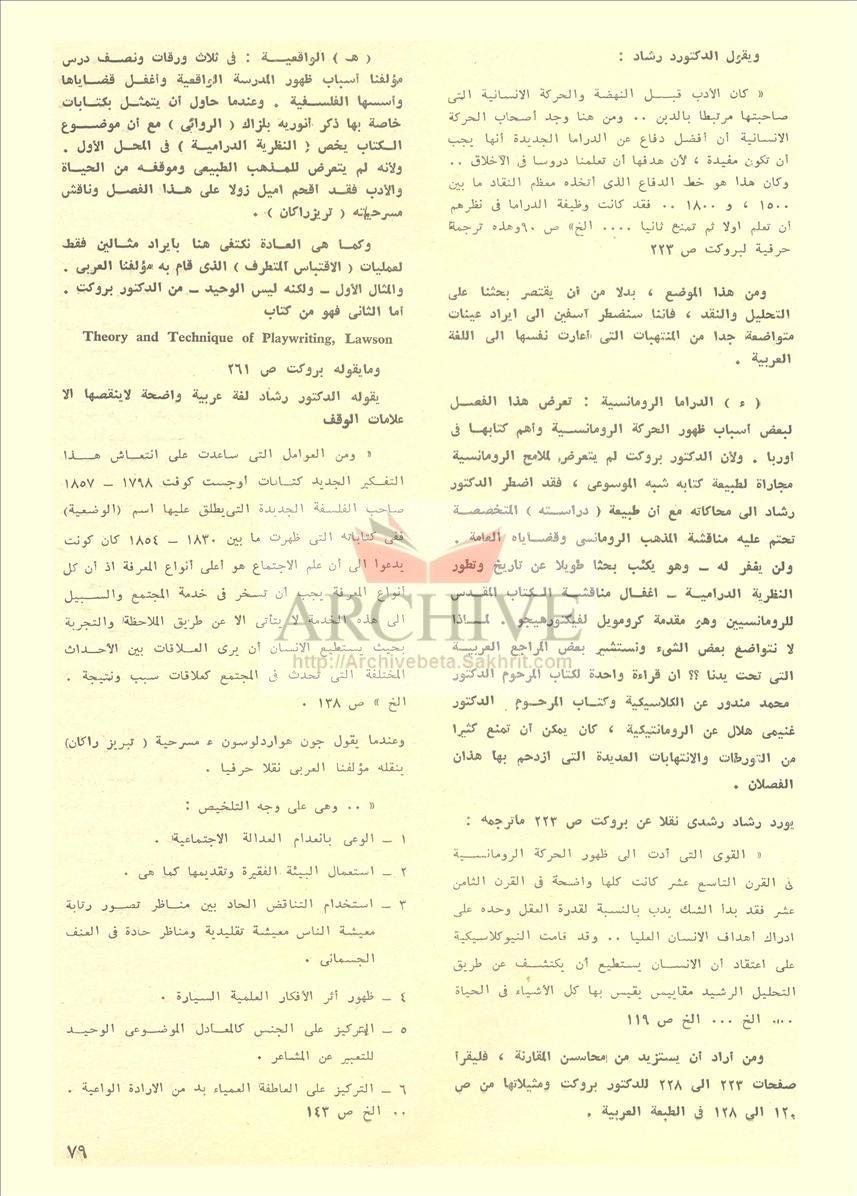 ويقول الدكتور رشاد :
« كان الأدب قبـــل النهضة والحركة الانسانية التى
صاحبتها مرتبطا بالدين .. ومن هنا وجد أصحاب الحركة
الانسانية أن أفضل دفاع عن الدراما الجديدة أنها يجب
أن تكون مفيدة ، لأن هدفها أن تعلمنا دروسا فى الآخلاق ..
وكان هذا هو خط الدفاع الذى أتخذه معظم النقاد ما بين
١٥٠٠ ، و ١٨٠٠ .. فقد كانت وظيفة الدراما فى نظرهم
أن تعلم اولا ثم تمتع ثانيا .... الخ» ص ٩٠ وهذه ترجمة
حرفية لبروكت ص ٢٢٣
ومن هذا الموضع ، بدلا من أن يقتصر بحثنا على
التحليل والنقد ، فاننا سنضطر آسفين الى ايراد عينات
متواضعة جدا من المنتهبات التى أعارت نفسها الى اللغة
العربية .
( ء ) الدراما الرومانسية : تعرض هذا الفصـــل
لبعض أسباب ظهور الحركة الرومانســية وأهم كتابهـا فى
أوربا . ولأن الدكتور بروكت لم يتعرض لملامح الرومانسية
مجاراة لطبيعة كتابه شبه الموسوعى ، فقد اضطر الدكتور
رشاد الى محاكاته مع أن طبيعة ( دراســته ) المتخصصـة
تحتم عليه مناقشة المذهب الرومانسى وقضـاياه العامة .
ولن يغفر له ــ وهو يكتب بحثا طويلا عن تاريخ وتطور
النظرية الدراميـة ــ اغفـال مناقشـة الـكتاب المقـدس
للرومانسيين وهى مقدمة كرومويل لفيكتورهيجو . لمـــاذا
لا نتواضع بعض الشىء ونستشير بعض المراجع العربيـة
التى تحت يدنا ؟؟ ان قراءة واحدة لكتاب المرحوم الدكتور
محمد مندور عن الكلاسيكية وكتـاب المرحـوم الدكتور
غنيمى هلال عن الرومانتيكية ، كان يمكن أن تمنع كثيرا
من التورطات والانتهابات العديدة التى ازدحم بها هذان
الفصلان .
يورد رشاد رشدى نقلا عن بروكت ص ٢٢٣ ماترجمه :
« القوى التى أدت الى ظهور الحركة الرومانســية
فى القرن التاسع عشر كانت كلها واضحة فى القرن الثامن
عشر فقد بدأ الشك يدب بالنسبة لقدرة العقل وحده على
ادراك أهداف الانسان العليا .. وقد قامت النيوكلاسيكية
على اعتقاد أن الانســان يسـتطيع أن يكتشـف عن طريق
التحليل الرشيد مقاييس يقيس بها كل الأشياء فى الحياة
.... الخ ... الخ ص ١١٩
ومن أراد أن يستزيد من محاسن المقارنة ، فليقرأ
صفحات ٢٢٣ الى ٢٢٨ للدكتور بروكت ومثيلاتها من ص
١٢٠ الى ١٢٨ فى الطبعة العربية .
( هـ ) الواقعيـة : فى ثلاث ورقات ونصـف درس
مؤلفنا أسباب ظهور المدرسة الواقعية وأغفـل قضـاياها
وأسسها الفلسـفية . وعندما حاول أن يتمثـل بكتـابات
خاصة بها ذكر أنوريه بلزاك ( الروائى ) مع أن موضـــوع
الـكتاب يخص ( النظرية الدراميـة ) فى المحـل الأول .
ولأنه لم يتعرض للمـذهب الطبيعى وموقفـه من الحيـاة
والأدب فقـد اقحم اميل زولا على هـذا الفصـل وناقش
مسرحيته ( تريزراكان ) .
وكمـا هى العـادة نكتفى هنا بايراد مثـالين فقط
لعمليات ( الاقتباس المتطرف ) الذى قام به مؤلفنا العربى .
والمثال الأول ــ ولكنه ليس الوحيد ــ من الدكتور بروكت .
أما الثانى فهو من كتاب
Theory and Technique of Playwriting, Lawson
ومايقوله بروكت ص ٢٦١
يقوله الدكتور رشاد لغة عربية واضحة لاينقصها الا
علامات الوقف
« ومن العوامل التى ساعدت على انتعـاش هـــذا
التفـكير الجديد كتـابات أوجست كوفت ١٧٩٨ ــ ١٨٥٧
صاحب الفلسفة الجديدة التى يطلق عليها اسم (الوضعية)
ففى كتاباته التى ظهرت ما بين ١٨٣٠ ــ ١٨٥٤ كان كونت
يدعوا الى أن علم الاجتماع هو أعلى أنواع المعرفة اذ أن كل
أنواع المعرفة يجب أن تسخر فى خدمة المجتمع والسـبيل
الى هذه الخدمة لا يتأتى الا عن طريق الملاحظة والتجربة
بحيث يستطيع الانسان أن يرى العلاقات بين الأحـداث
المختلفة التى تحدث فى المجتمع كعلاقات سبب ونتيجة .
الخ » ص ١٣٨ .
وعندما يقول جون هواردلوسون ء مسرحية ( تيريز راكان)
ينقله مؤلفنا العربى نقلا حرفيا .
« .. وهى على وجه التلخيص :
١ ــ الوعى بانعدام العدالة الاجتماعية .
٢ ــ استعمال البيئة الفقيرة وتقديمها كما هى .
٣ ــ استخدام التناقض الحاد بين منـاظر تصـور رتابة
معيشة الناس معيشة تقليدية ومناظر حادة فى العنف
الجسمانى .
٤ ــ ظهور أثر الأفكار العلمية السيارة .
٥ ــ التركيز على الجنس كالمعادل الموضـوعى الوحيـد
للتعبير عن المشاعر .
٦ ــ التركيز على العاطفة العمياء بد من الارادة الواعية .
.. الخ ص ١٤٣
٧٩
ARCHIVE
http://Archivebeta.Sakhrit.com